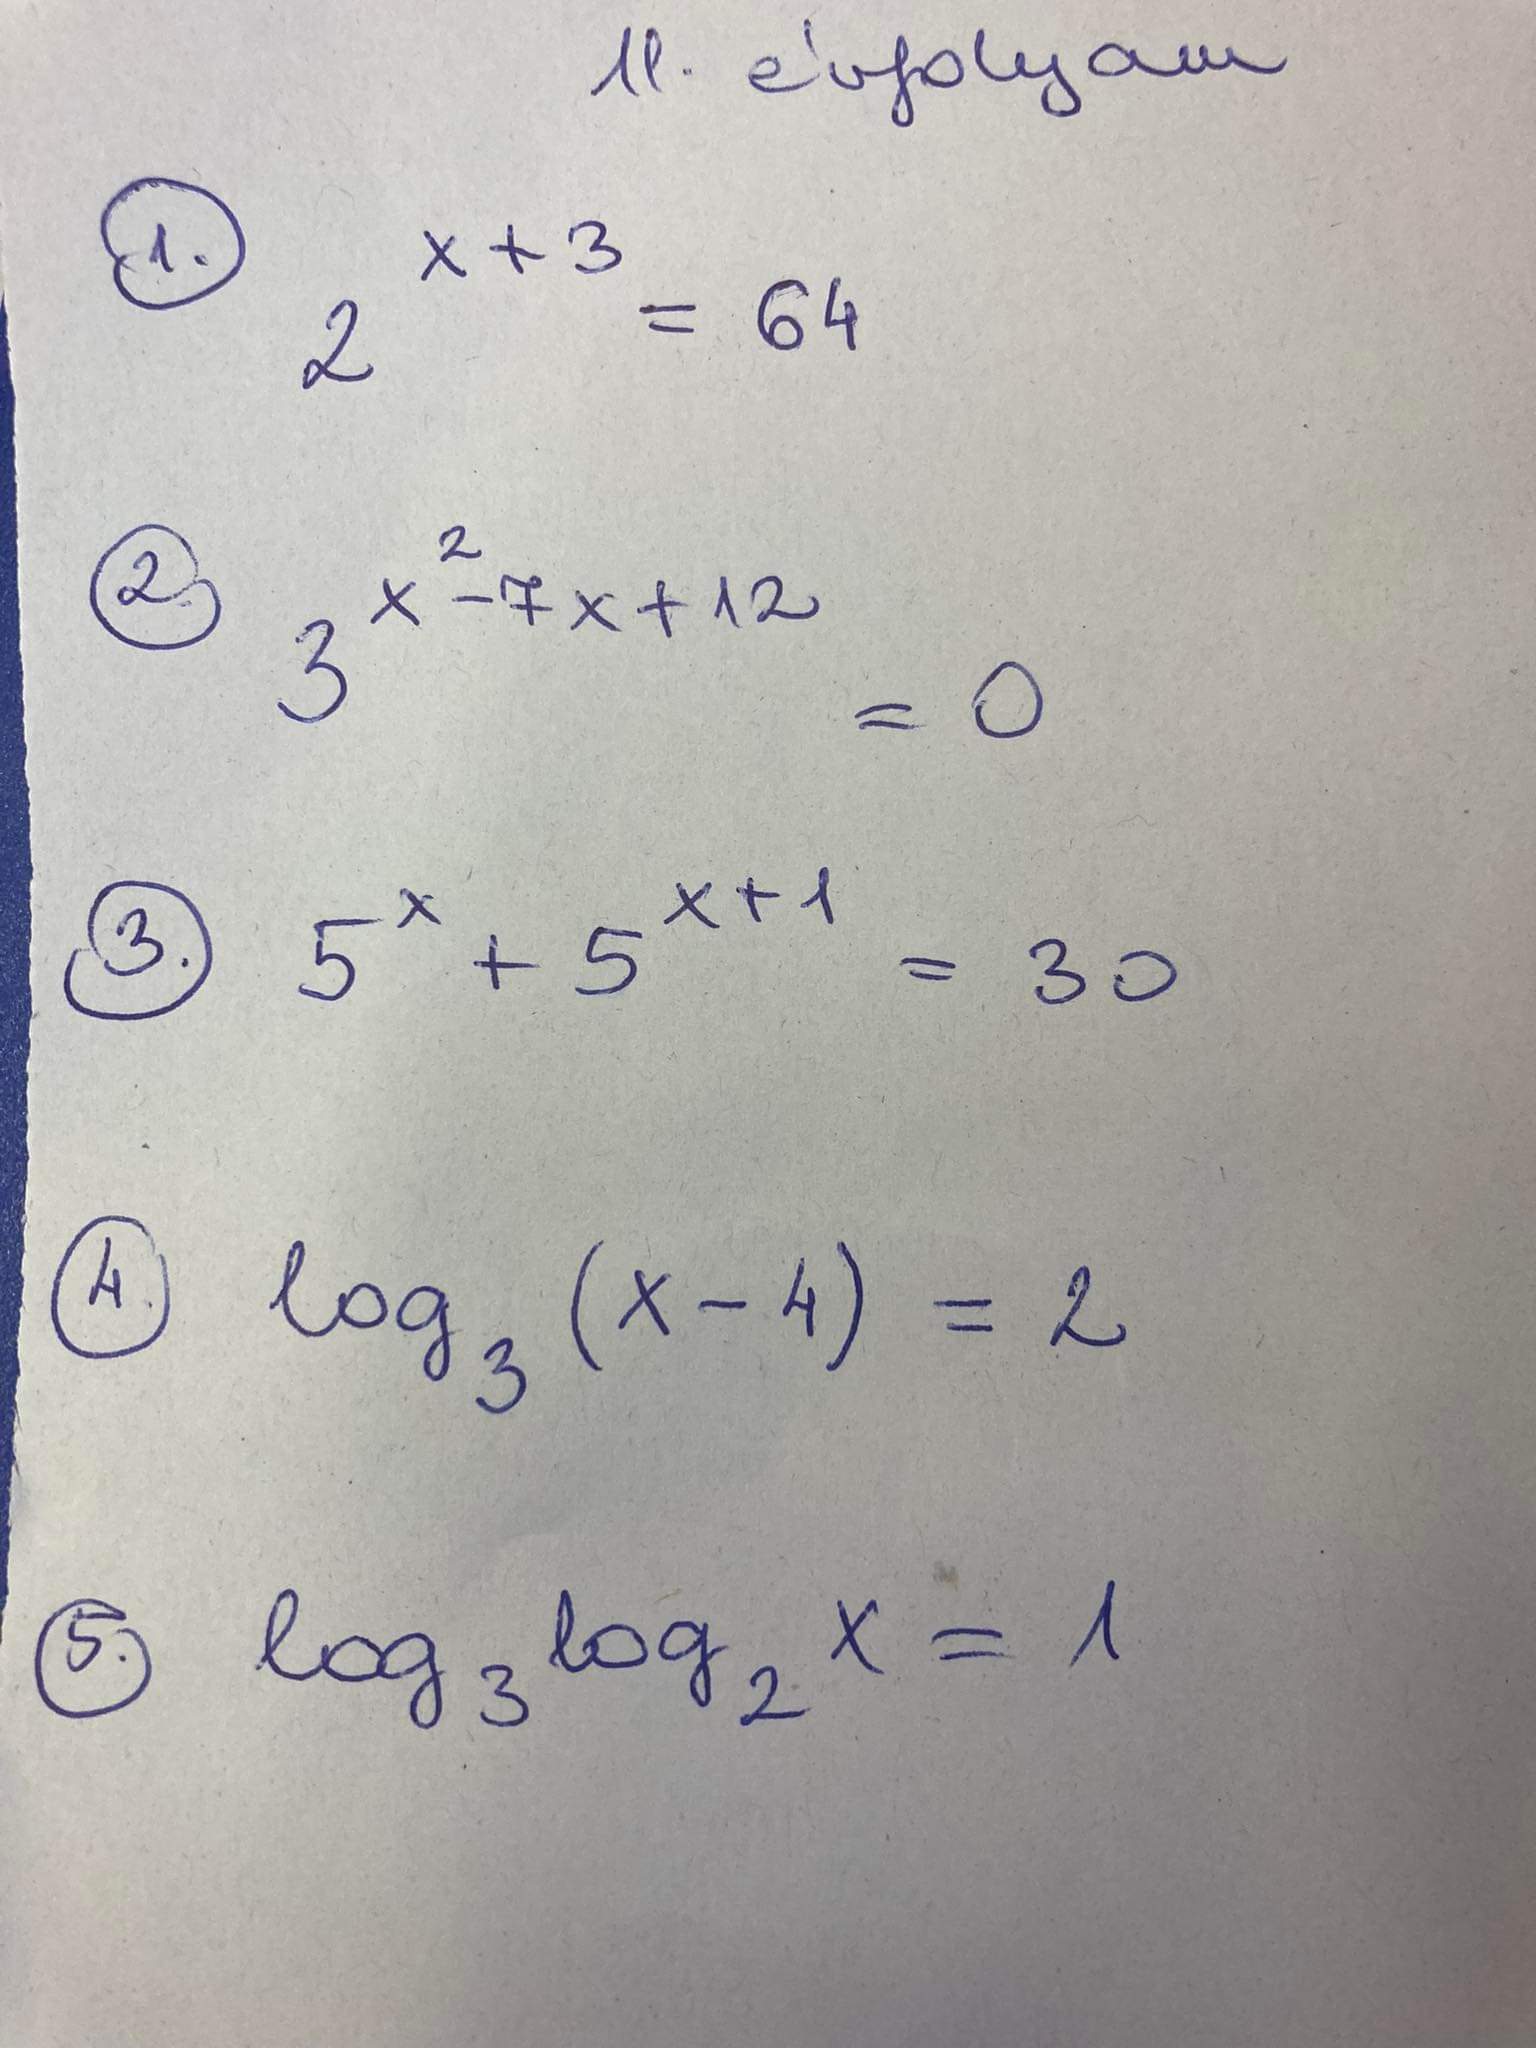 11. évfolyam
1. 2^{x+3} = 64
2. 3^{x^2-7x+12} = 0
3. 5^x + 5^{x+1} = 30
4. log_3 (x-4) = 2
5. log_3 log_2 x = 1